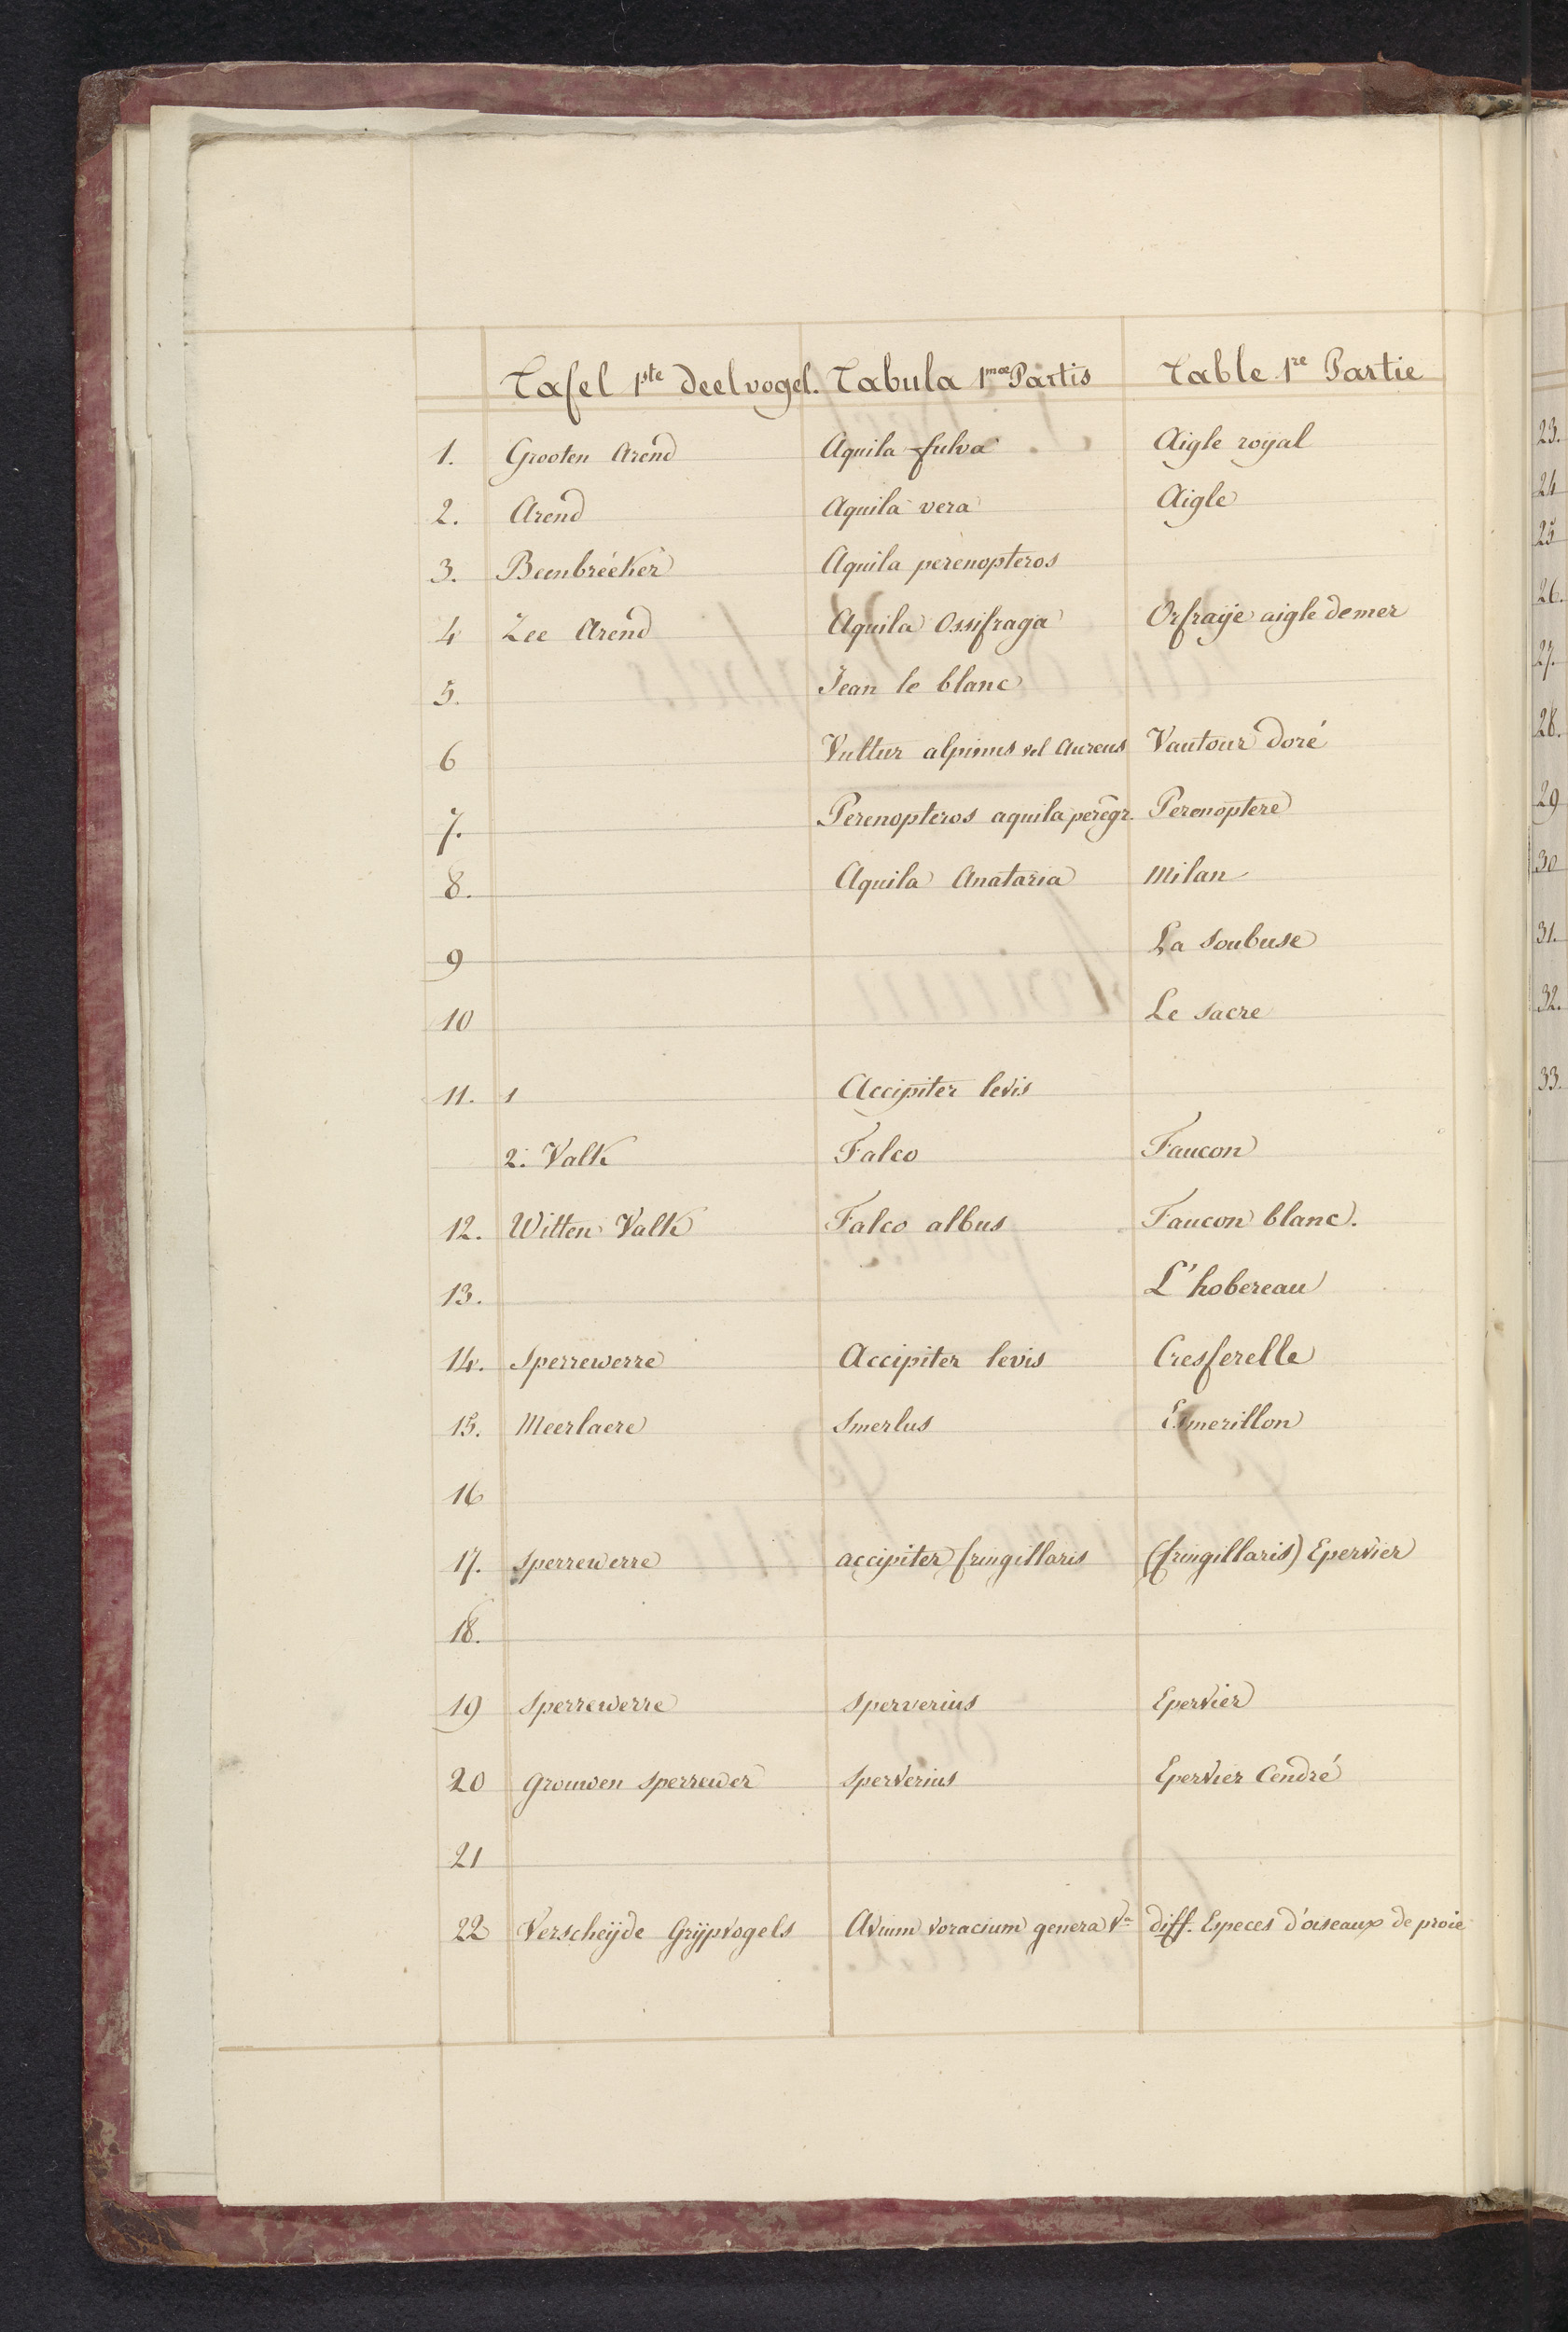 Tafel 1ste deel vogel. Tabula 1mae Partis Table 1re Partie
1. Grooten Arend Aquila fulva Aigle royal
2. Arend Aquila vera Aigle
3. Beenbréeker Aquila perenopteros
4 Zee Arend Aquila Ossifraga Orfraije aigle de mer
5. Jean le blanc
6 Vultur alpinus vel Aureus Vautour doré
7. Perenopteros aquila peregr. Perenoptere
8. Aquila Anataria Milan
9 La Soubuse
10 Le Sacre
11. 1 Accipiter levis
2. Valk Falco Faucon
12. Witten Valk Falco albus Faucon blanc.
13. L'hobereau
14. Sperrewerre Accipiter levis Cresferelle
15. Meerlaere Smerlus Esmerillon
16
17. Sperrewerre accipiter fringillaris (fringillaris) Epervier
18.
19 Sperrewerre Sperverius Epervier
20 Grouwen Sperrewer Sperverius Epervier Cendré
21
22 Verscheijde Grijpvogels Avium voracium genera Va diff. Especes d'oiseaux de proie
23.
24
25
26.
27.
28.
29
30
31.
32.
33.